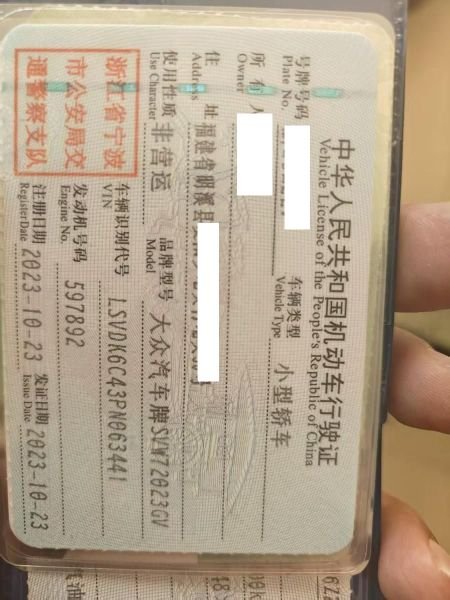 中华人民共和国机动车行驶证
Vehicle License of the People's Republic of China
号牌号码
Plate No.
车辆类型 小型轿车
Vehicle Type
所有人
Owner
住址 福建省明溪县
Address
使用性质 非营运
Use Character
品牌型号 大众汽车牌SVW72023GV
Model
浙江省宁波
市公安局交
通警察支队
车辆识别代号 LSVDK6C43PN063441
VIN
发动机号码 597892
Engine No.
注册日期 2023-10-23
Register Date
发证日期 2023-10-23
Issue Date